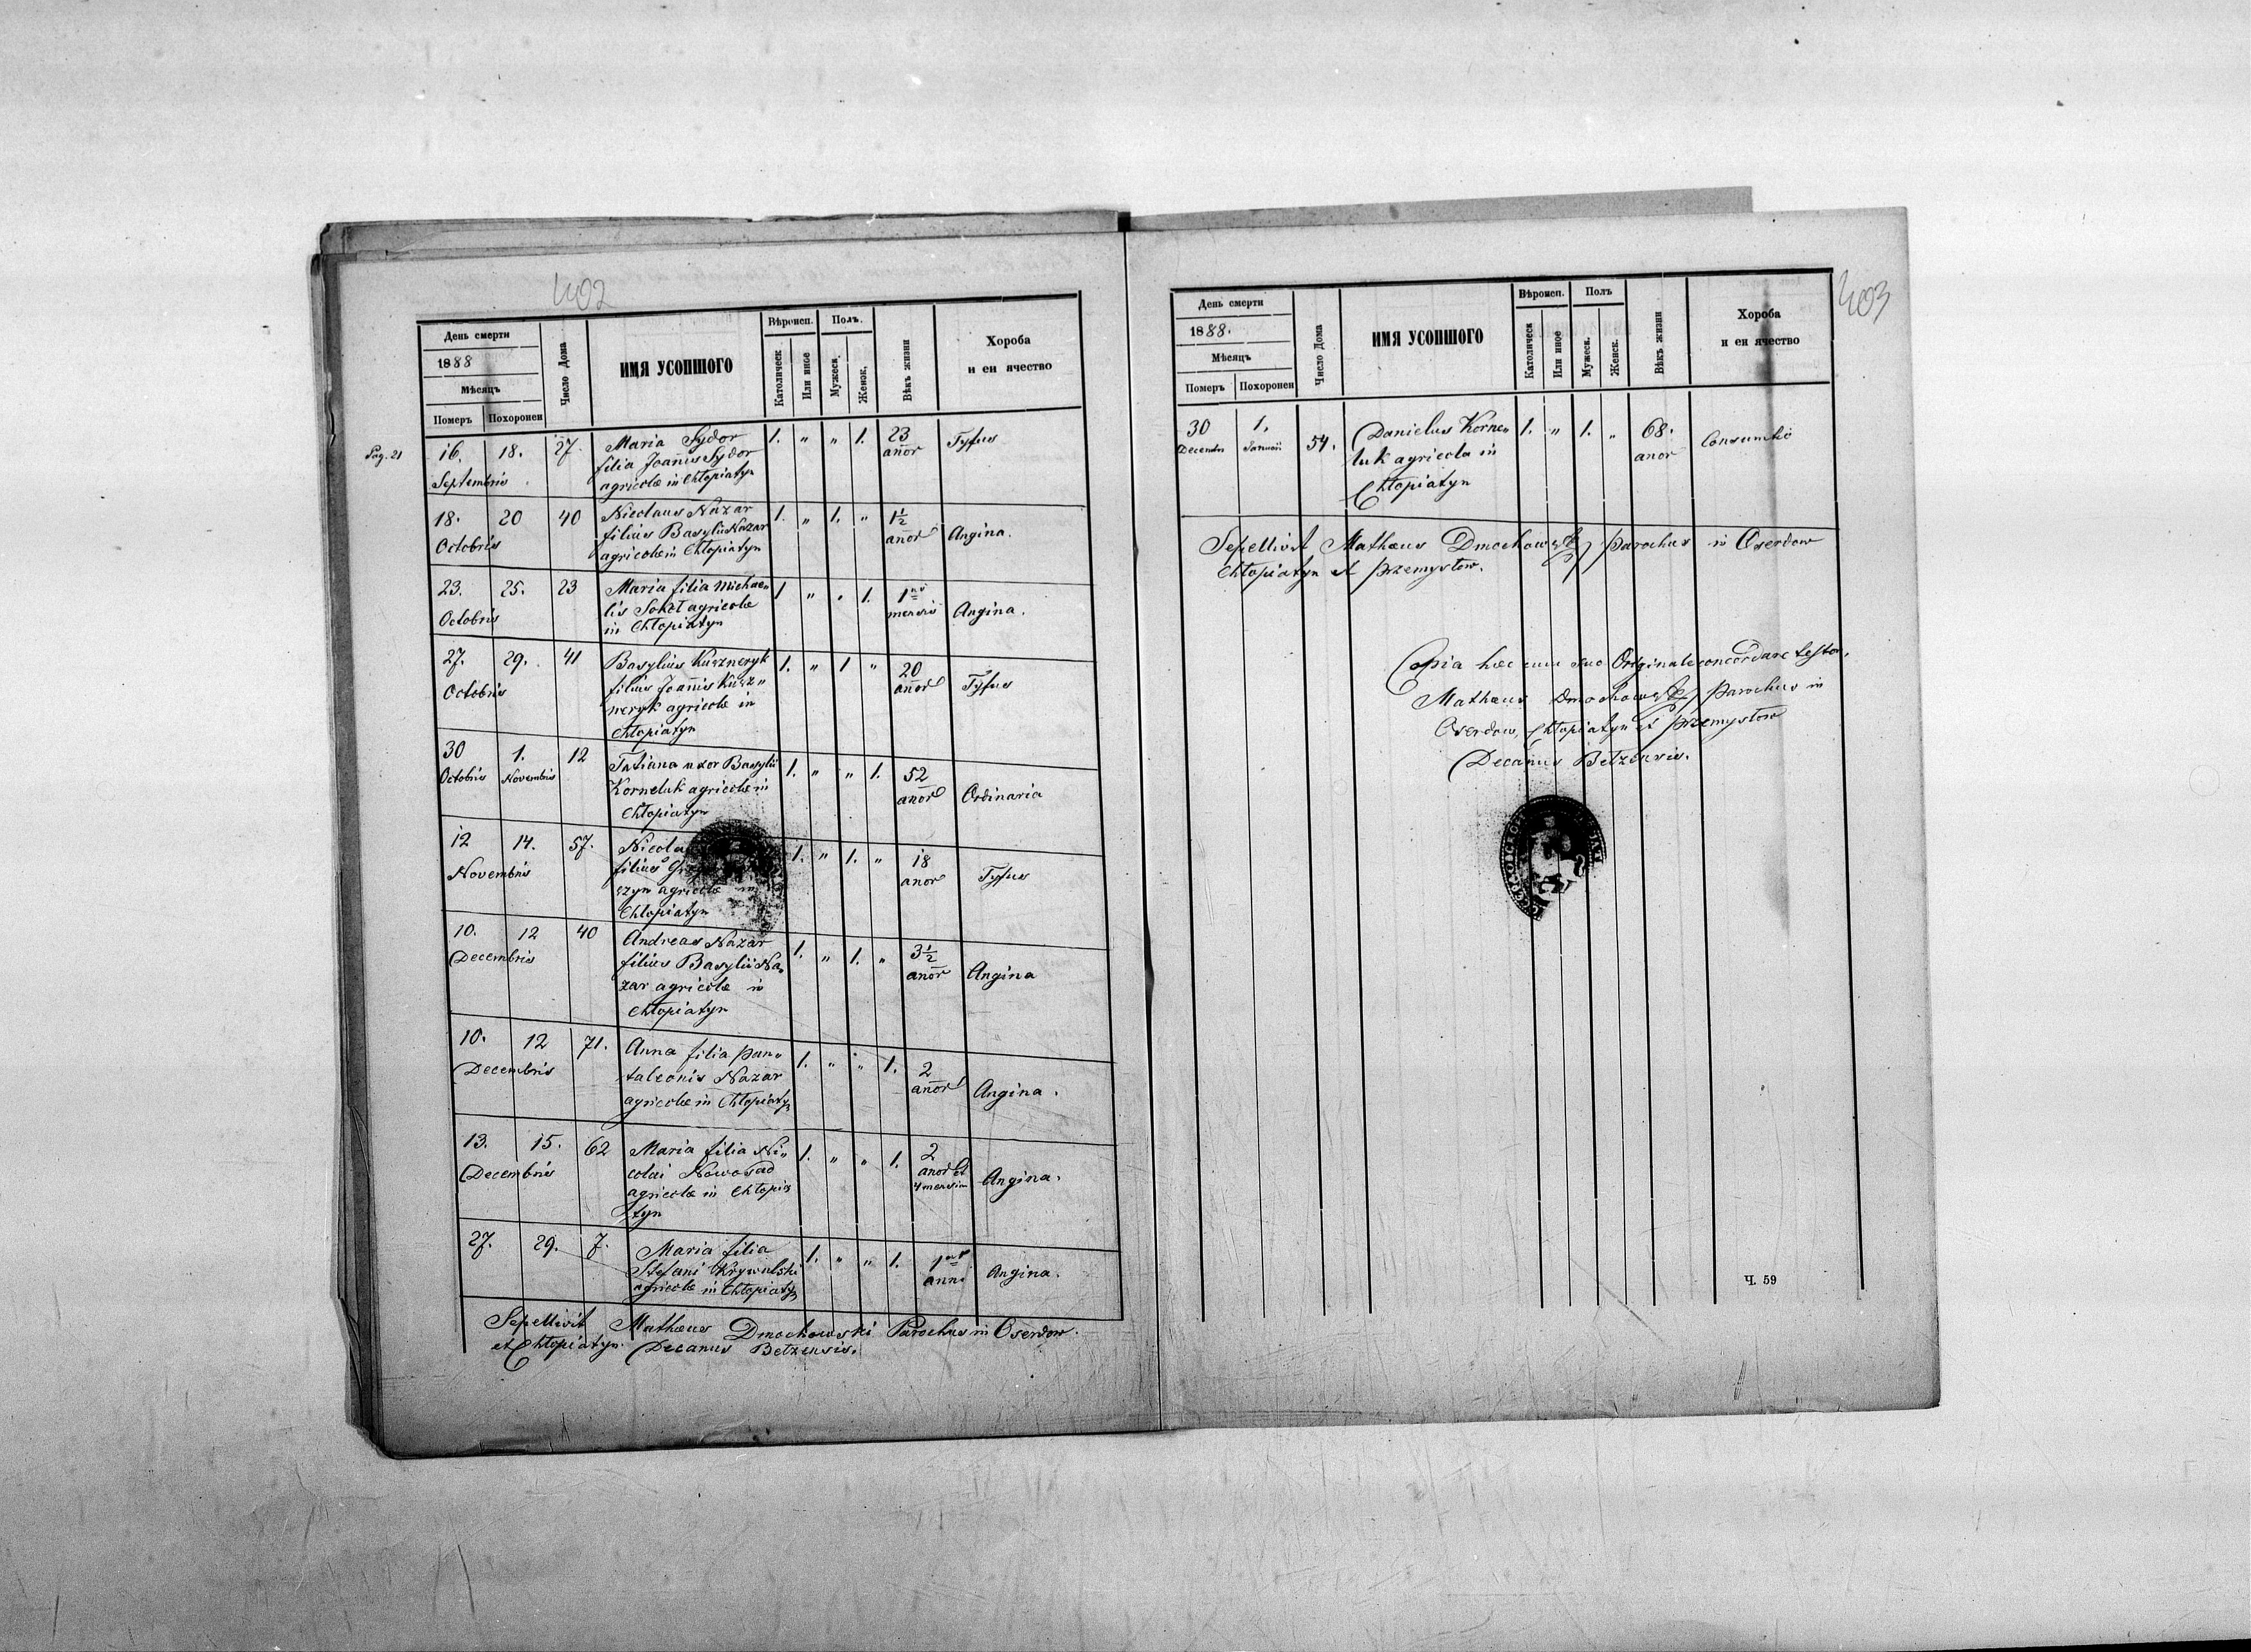 402
День смерти
1888
Мѣсяць
Померъ Похоронен
Число Дома
ИМЯ УСОПШОГО
Вѣроисп.
Католическ
Или иное
Полъ.
Мужеск.
Женск.
Вѣкъ жизни
Хороба
и еи ячество
Pag. 21
16. 18. 27. Maria Sydor 1. " " 1. 23 Tyfus
Septembris filia Joannis Sydor anor
agricolæ in Chłopiatyn
18. 20 40 Nicolaus Nazar 1. " 1. " 1½ Angina.
Octobris filius Basylii Nazar anor
agricolæ in Chłopiatyn
23. 25. 23 Maria filia Michae„ 1 " " 1. 1 Angina.
Octobris lis agricolæ mensis
in Chłopiatyn
27. 29. 41 Basylius Kuszneryk 1. " 1 " 20 Tyfus
Octobris filius Joannis Kusz„ anor
neryk agricolæ in
Chłopiatyn
30 1. 12 Tatiana uxor Basylii 1. " " 1. 52 Ordinaria
Octobris Novembris Korneluk agricolæ in anor
Chłopiatyn
12 14. 57. 1. " 1. " 18 Tyfus
Novembris filius anor
czyn agricolæ in
Chłopiatyn
10. 12 40 Andreas Nazar 1. " 1. " 3½ Angina
Decembris filius Basylii Na„ anor
zar agricolæ in
Chłopiatyn
10. 12 71. Anna filia Pan„ 1. " " 1. 2 Angina.
Decembris taleonis Nazar anor
agricolæ in Chłopiatyn
13. 15. 62 Maria filia Ni„ 1. " " 1. 2 Angina.
Decembris colai Nowosad anor et
agricolæ in Chłopia 4 mensium
tyn
27. 29. 7. Maria filia 1. " " 1. 1 Angina.
Stefani Krywulski anni
agricolæ in Chłopiatyn
Sepellivit Mathæus Dmochowski Parochus in Oserdow
et Chłopiatyn. Decanus Bełzensis.
403
День смерти
1888.
Мѣсяць
Померъ Похоронен
Число Дома
ИМЯ УСОПШОГО
Вѣроисп.
Католическ
Или иное
Полъ
Мужеск.
Женск.
Вѣкъ жизни
Хороба
и еи ячество
30 1. 54. Danielus Korne„ 1. " 1. " 68. Consumtio
Decembr Januarii luk agricola in anor
Chłopiatyn
Sepellivit Mathæus Dmochowski Parochus in Oserdow
Chłopiatyn et Przemysłow.
Copia hæc cum suo Originale concordare testor.
Mathæus Dmochowski Parochus in
Oserdow, Chłopiatyn et Przemysłow
Decanus Bełzensis.
Ч. 59